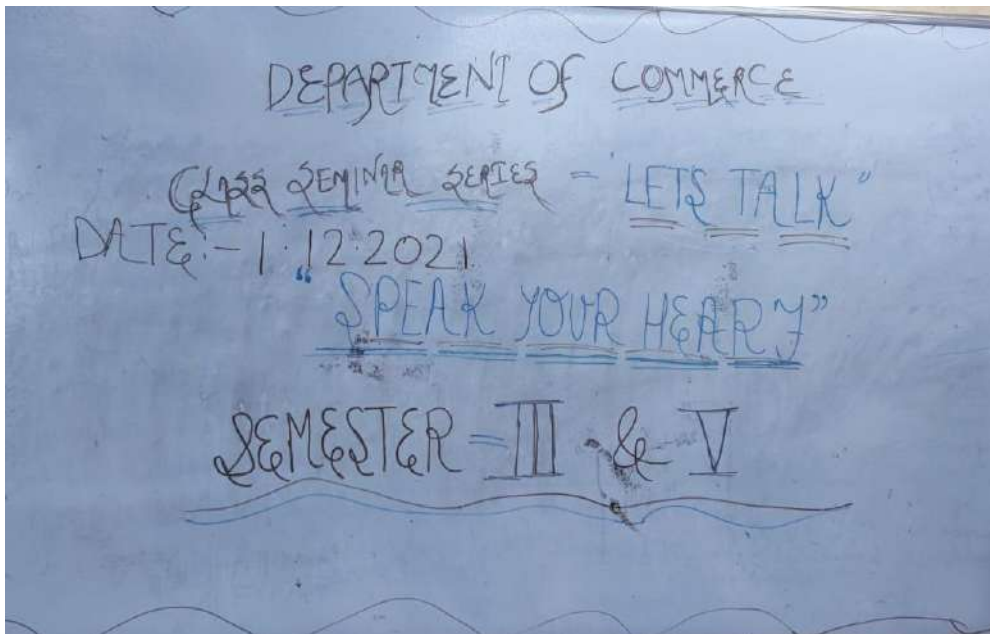 DEPARTMENT OF COMMERCE
CLASS SEMINAR SERIES - 'LETS TALK"
DATE:- 1.12.2021
"SPEAK YOUR HEART"
SEMESTER = III & V